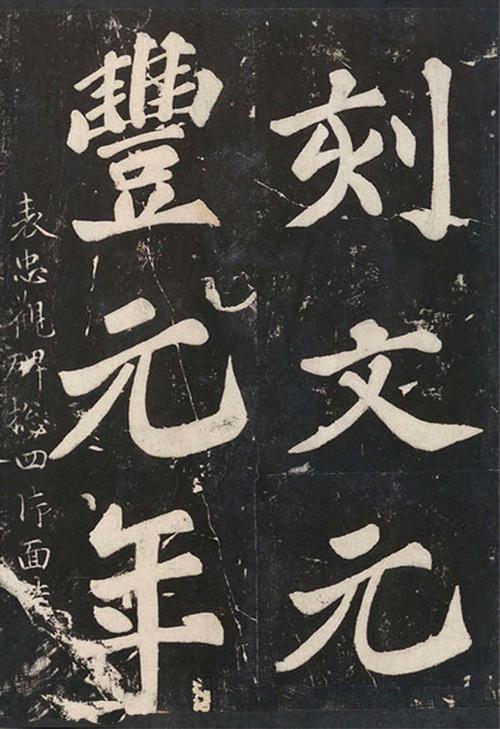 刻文元
豐元年
表忠觀碑四片面